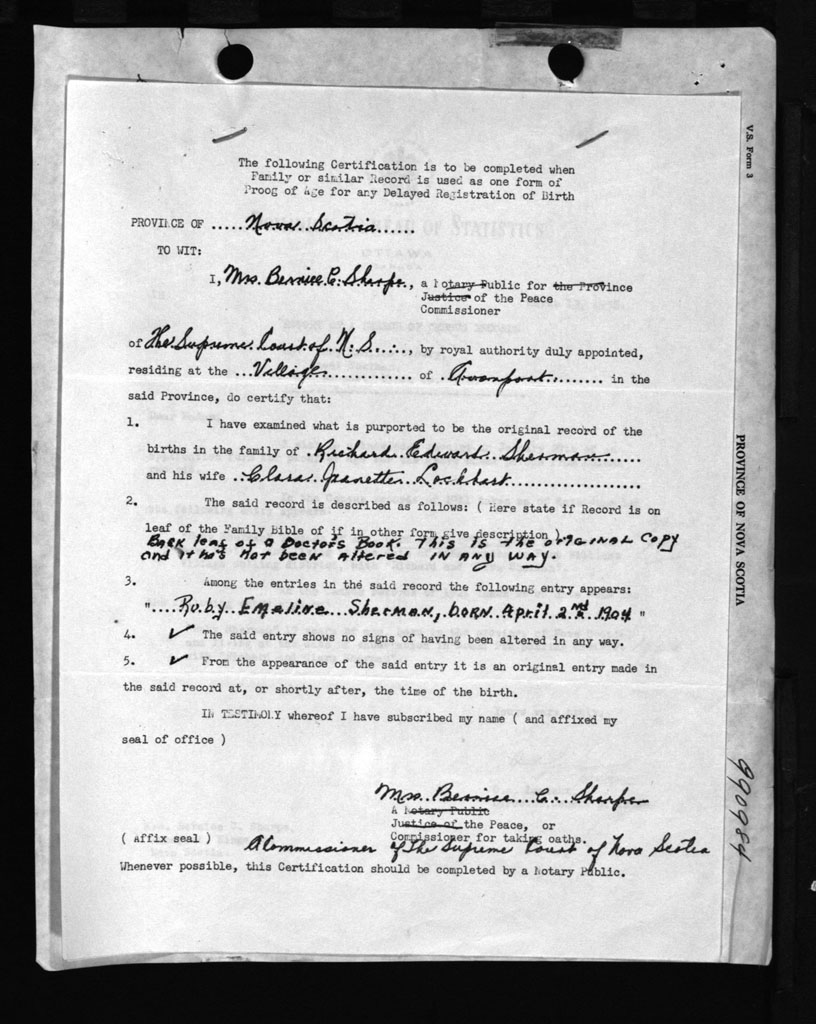 The following Certification is to be completed when
Family or similar Record is used as one form of
Proog of Age for any Delayed Registration of Birth
PROVINCE OF ..... Nova Scotia ......
TO WIT:
I, Mrs. Bernice C. Sharpe, a Notary Public for the Province
Justice of the Peace
Commissioner
of The Supreme Court of N.S. ..., by royal authority duly appointed,
residing at the ...Village............... of .Avonport........ in the
said Province, do certify that:
1. I have examined what is purported to be the original record of the
births in the family of .Richard Edward Sherman......
and his wife ..Clara Jeanetter Lockhart...................
2. The said record is described as follows: ( Here state if Record is on
leaf of the Family Bible of if in other form give description )
Back leaf of a Doctors Book. This is the original copy
and it has not been altered in any way.
3. Among the entries in the said record the following entry appears:
".... Ruby Emeline Sherman, born April 2nd 1904 "
4. ✓ The said entry shows no signs of having been altered in any way.
5. ✓ From the appearance of the said entry it is an original entry made in
the said record at, or shortly after, the time of the birth.
IN TESTIMONY whereof I have subscribed my name ( and affixed my
seal of office )
Mrs. Bernice C. Sharpe
A Notary Public
Justice of the Peace, or
( Affix seal ) Commissioner for taking oaths.
A Commissioner of The Supreme Court of Nova Scotia
Whenever possible, this Certification should be completed by a Notary Public.
V.S. Form 3
PROVINCE OF NOVA SCOTIA
990984